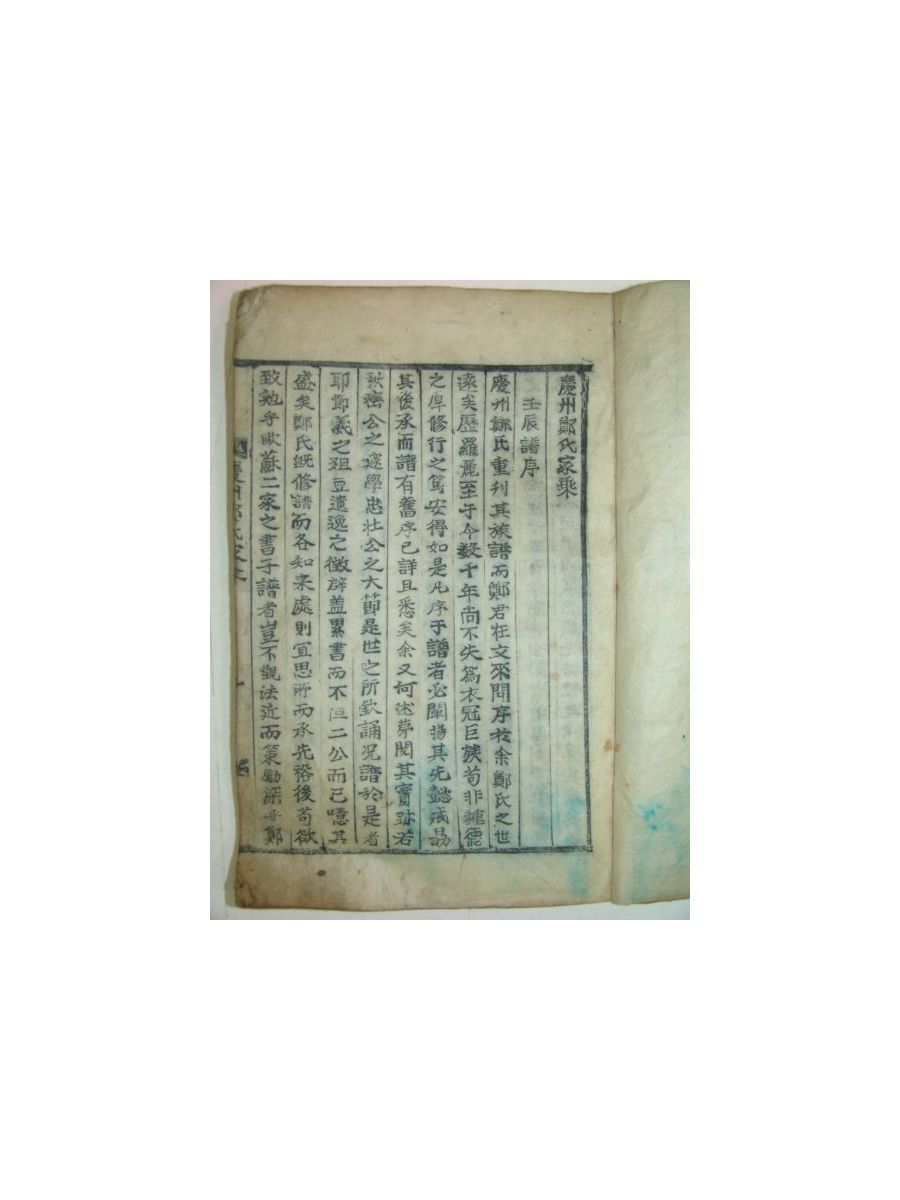 慶州鄭氏家乘
壬辰譜序
慶州鄭氏重刊其族譜而鄭君在文來問序於余鄭氏之世
遠矣歷羅麗至于今數千年尚不失爲衣冠巨族苟非種德
之厚修行之篤安得如是凡序于譜者必闡揚其先懿戒勗
其後承而譜有舊序已詳且悉矣余又何述夢聞其實跡若
文密公之邃學忠壯公之大節是世之所欽誦況譜於是者
耶節義之俎豆遺逸之徵辟盖累書而不但二公而已噫其
盛矣鄭氏旣修譜而各知來處則宜思所而承先裕後苟欲
致勉乎歐蘇二家之書于譜者豈不觀法近而策勵深乎鄭
慶州鄭氏家